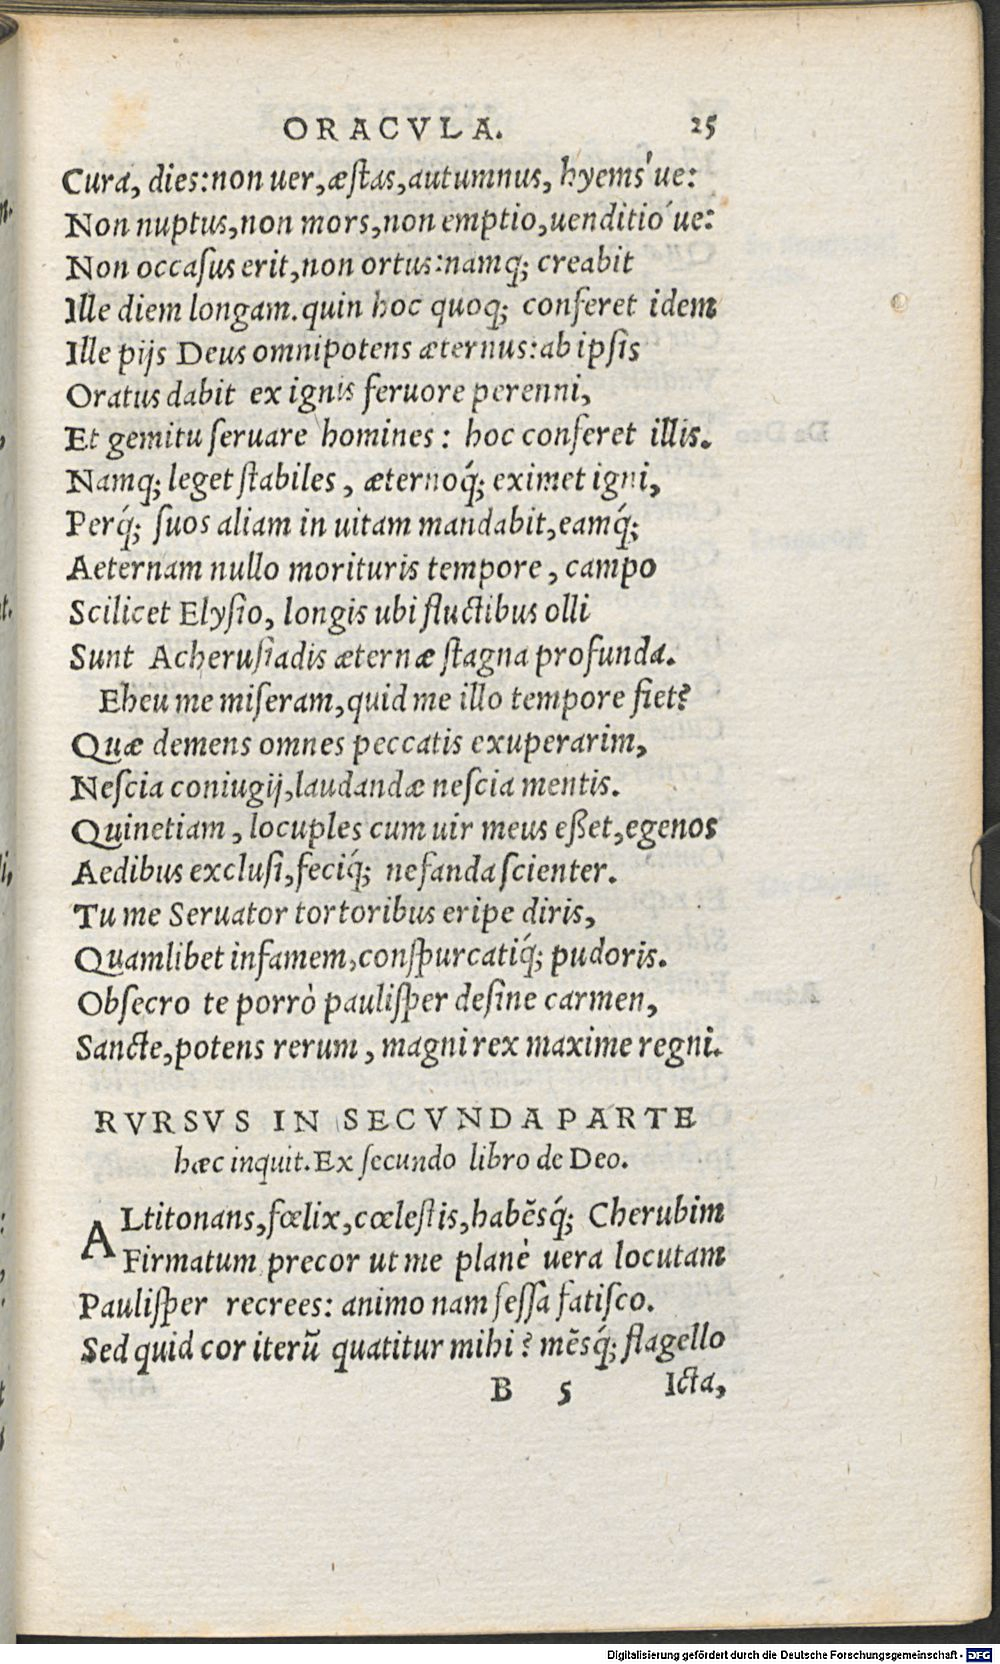 ORACVLA. 25
Cura, dies: non uer, æstas, autumnus, hyems'ue:
Non nuptus, non mors, non emptio, uenditio'ue:
Non occasus erit, non ortus: namq; creabit
Ille diem longam. quin hoc quoq; conferet idem
Ille pijs Deus omnipotens æternus: ab ipsis
Oratus dabit ex ignis feruore perenni,
Et gemitu seruare homines: hoc conferet illis.
Namq; leget stabiles, æternoq́; eximet igni,
Perq́; suos aliam in uitam mandabit, eamq́;
Aeternam nullo morituris tempore, campo
Scilicet Elysio, longis ubi fluctibus olli
Sunt Acherusiadis æternæ stagna profunda.
Eheu me miseram, quid me illo tempore fiet?
Quæ demens omnes peccatis exuperarim,
Nescia coniugij, laudandæ nescia mentis.
Quinetiam, locuples cum uir meus eßet, egenos
Aedibus exclusi, feciq́; nefanda scienter.
Tu me Seruator tortoribus eripe diris,
Quamlibet infamem, conspurcatiq́; pudoris.
Obsecro te porrò paulisper desine carmen,
Sancte, potens rerum, magni rex maxime regni.
RVRSVS IN SECVNDA PARTE
hæc inquit. Ex secundo libro de Deo.
ALtitonans, fœlix, cœlestis, habẽsq́; Cherubim
Firmatum precor ut me planè uera locutam
Paulisper recrees: animo nam fessa fatisco.
Sed quid cor iterũ quatitur mihi? mẽsq́; flagello
B 5 Icta,
Digitalisierung gefördert durch die Deutsche Forschungsgemeinschaft - DFG